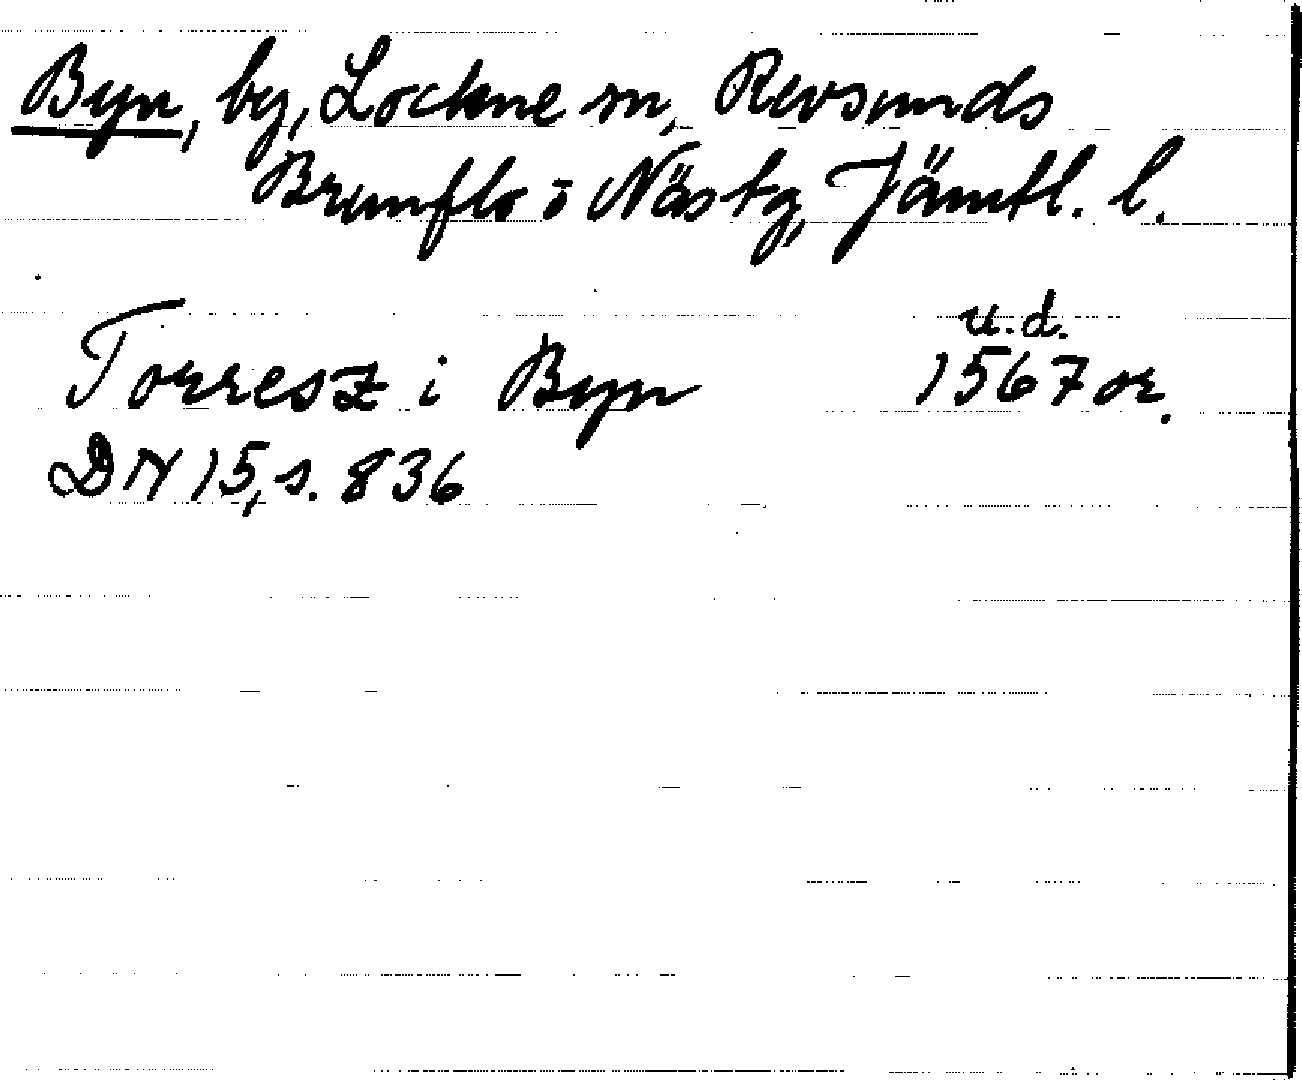 Byn, by, Lockne sn, Revsunds
Brunflo o Näs tg, Jämtl. l.
u.d.
Torresz i Byn 1567 or.
DN 15, s. 836